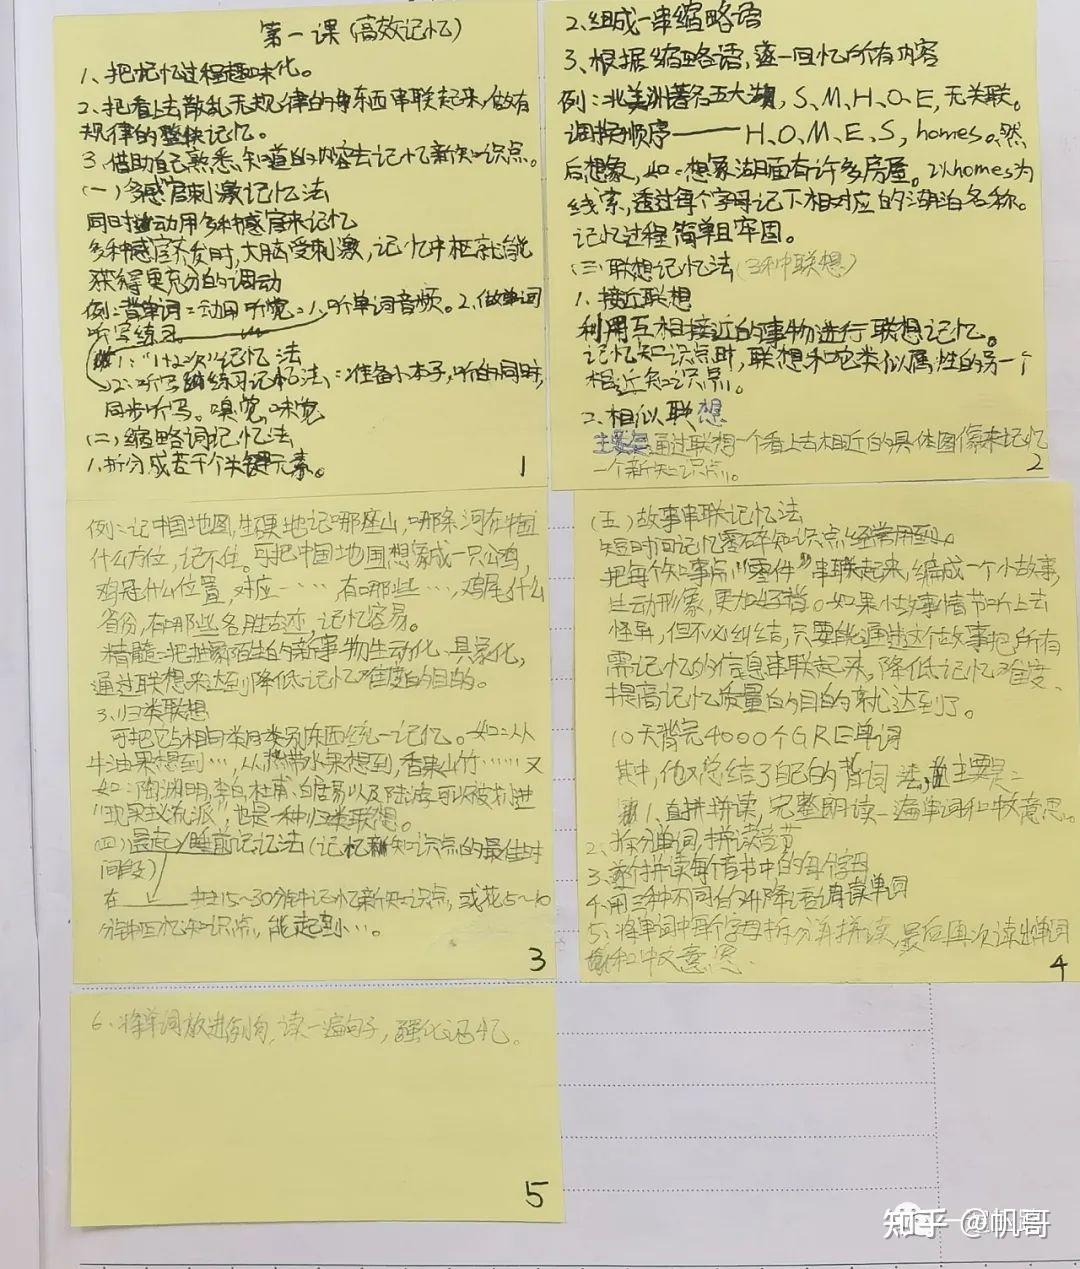 第一课(高效记忆)
1、把记忆过程趣味化。
2、把看上去散乱无规律的东西串联起来,做有
规律的整块记忆。
3、借助自己熟悉、知道的内容去记忆新知识点。
(一)多感官刺激记忆法
同时调动用多种感官来记忆
多种感官齐发时,大脑受刺激,记忆中枢就能
获得更充分的调动
例:背单词:动用听觉:1、听单词音频。2、做单词
听写练习
1:“1+2次”记忆法
2:听写练习记忆法:准备小本子,听的同时,
同步听写。嗅觉,味觉
(二)缩略词记忆法
1、拆分成若干个关键元素。
1
2、组成一串缩略语
3、根据缩略语,逐一回忆所有内容
例:北美洲著名五大湖,S、M、H、O、E,无关联。
调换顺序——H、O、M、E、S,homes。然
后想象,如:想象湖面有许多房屋。以homes为
线索,透过每个字母记下相对应的湖泊名称。
记忆过程简单且牢固。
(三)联想记忆法(3种联想)
1、接近联想
利用互相接近的事物进行联想记忆。
记忆知识点时,联想和它类似属性的另一个
相近知识点。
2、相似联想
主要是通过联想一个看上去相近的具体图像来记忆
一个新知识点。
2
例:记中国地图,生硬地记哪座山,哪条河在中国
什么方位,记不住。可把中国地图想象成一只公鸡,
鸡是什么位置,对应……有哪些…,鸡尾什么
省份,有哪些名胜古迹,记忆容易。
精髓:把抽象陌生的新事物生动化、具象化,
通过联想来达到降低记忆难度的目的。
3、归类联想
可把它与相同类别东西统一记忆。如:从
牛油果想到…,从热带水果想到,香果山竹……又
如:陶渊明,李白,杜甫、白居易以及陆游可以被划进
“现实主义流派”,也是一种归类联想。
(四)晨起、睡前记忆法(记忆新知识点的最佳时
间段)
在 挤出15~30分钟记忆新知识点,或花5~10
分钟回忆知识点,能起到…。
3
(五)故事串联记忆法
短时间记忆零碎知识点经常用到。
把每个知识点“零件”串联起来,编成一个小故事,
生动形象,更加好背。如果小故事情节听上去
怪异,但不必纠结,只要能通过这个故事把所有
需记忆的信息串联起来,降低记忆难度、
提高记忆质量的目的就达到了。
10天背完4000个GRE单词
其中,他又总结了自己的背词法,主要是:
1、直拼拼读,完整朗读一遍单词和中文意思。
2、拆分单词,拼读音节
3、逐个拼读每个音节中的每个字母
4、用三种不同的升降语调读单词
5、将单词中每个字母拆分并拼读,最后再次读出单词
和中文意思
4
6、将单词放进例句,读一遍句子,强化记忆。
5
知乎 @帆哥